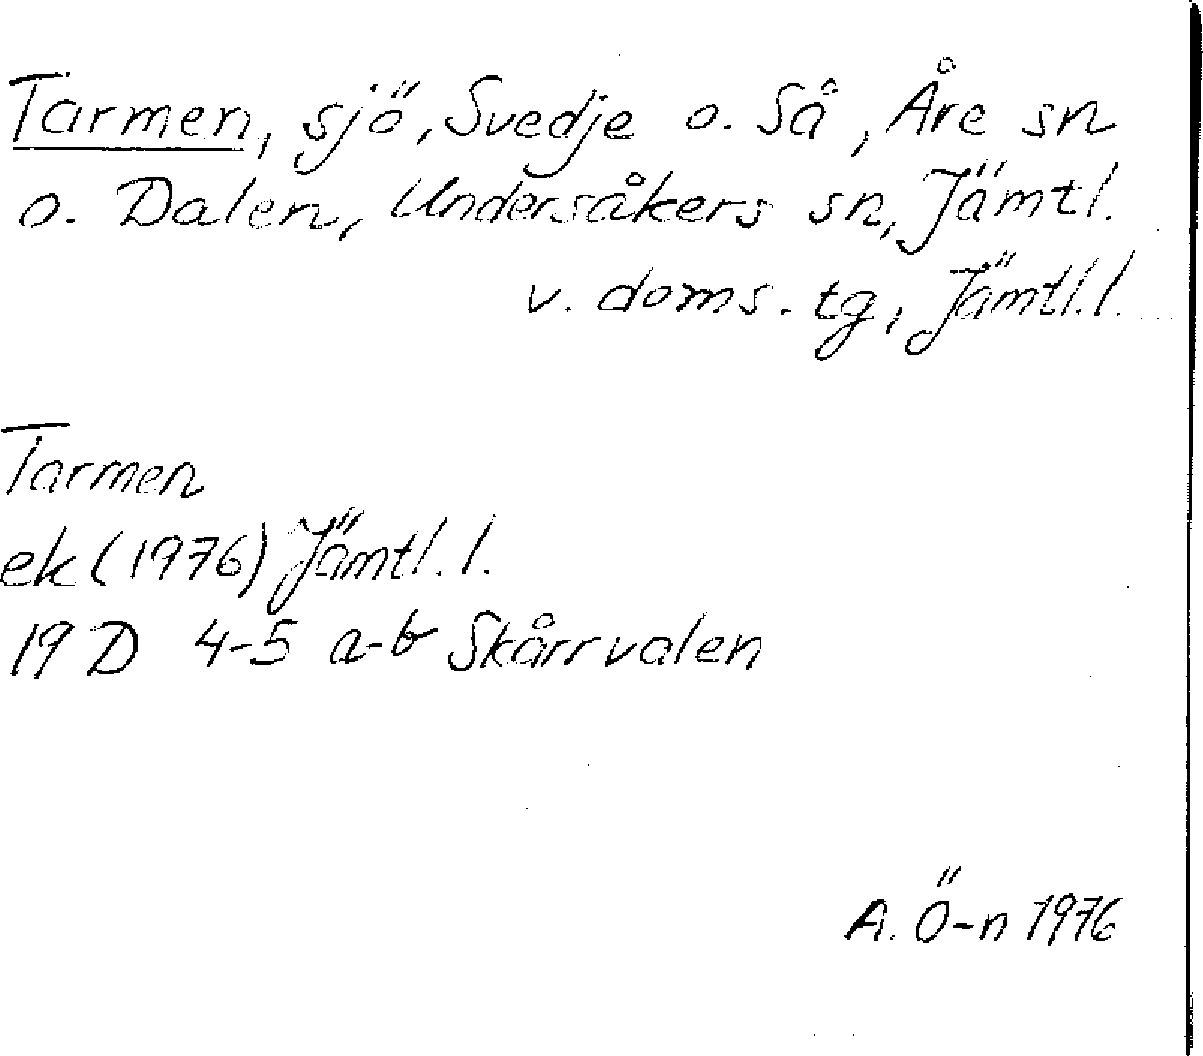 Tarmen, sjö, Svedje o. Så, Åre sn
o. Dalen, Undersåkers sn, Jämtl.
v. doms. tg, Jämtl. l.
Tarmen
ek (1976) Jämtl. l.
19 D 4-5 a-b Skårrvalen
A. Ö-n 1976